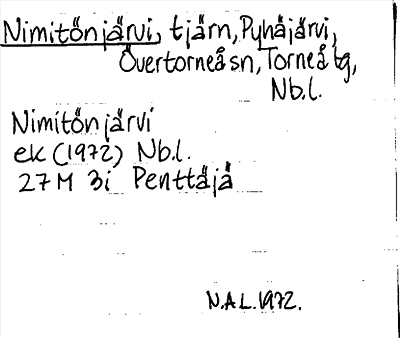 Nimitönjärvi, tjärn, Pyhäjärvi,
Övertorneå sn, Torneå tg,
Nb.l.
Nimitönjärvi
ek (1972) Nb.l.
27 M 3i Penttäjä
N.A.L. 1972.